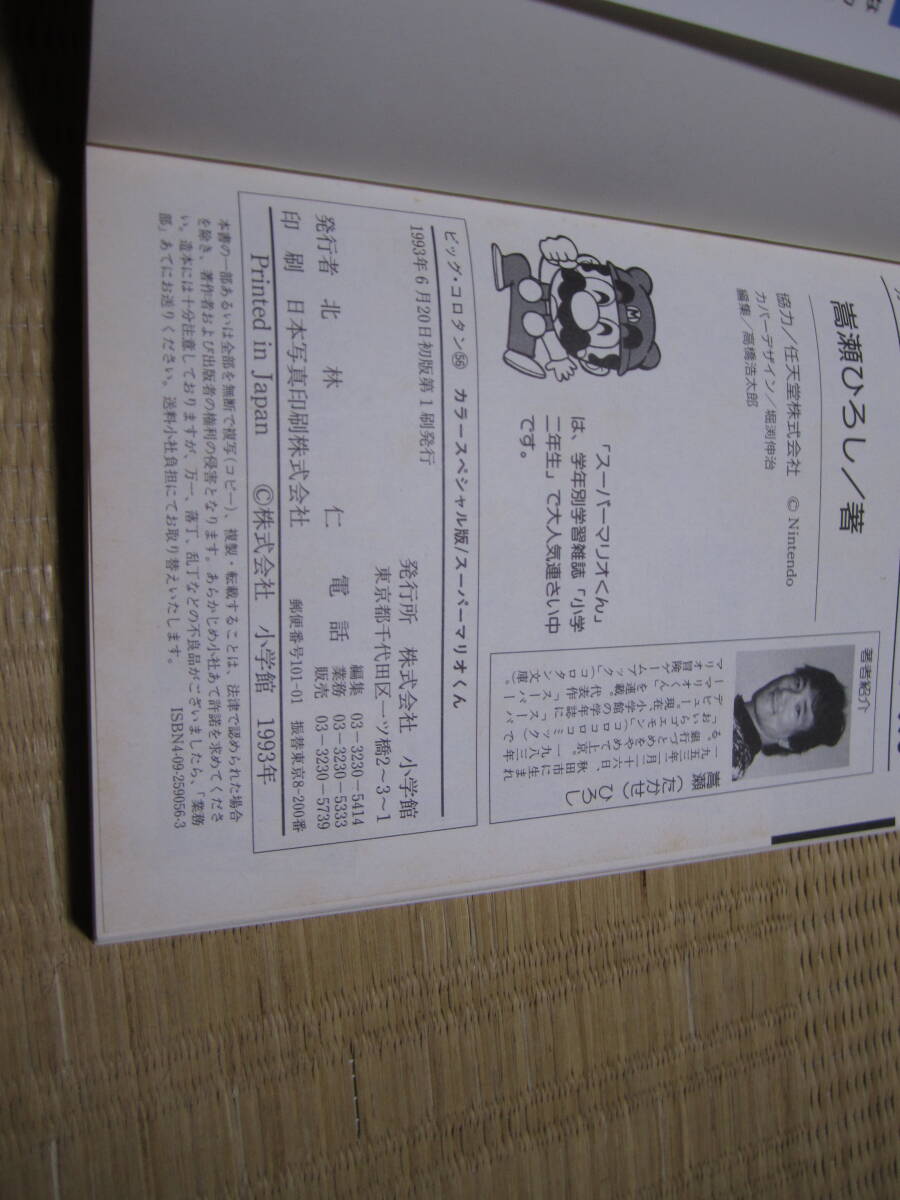 嵩瀬ひろし／著
協力／任天堂株式会社　© Nintendo
カバーデザイン／堀渕伸治
編集／高橋浩太郎
著者紹介
嵩瀬（たかせ）ひろし
「スーパーマリオくん」
は、学年別学習雑誌「小学
二年生」で大人気連さい中
です。
M
ビッグ・コロタン56　カラースペシャル版/スーパーマリオくん
1993年6月20日初版第1刷発行
発行所　株式会社　小学館
東京都千代田区一ツ橋2〜3〜1
発行者　北林　仁
電話
編集　03―3230―5414
業務　03―3230―5333
販売　03―3230―5739
印刷　日本写真印刷株式会社
郵便番号101-01　振替東京8-200番
Printed in Japan　©株式会社　小学館　1993年
本書の一部あるいは全部を無断で複写(コピー)、複製・転載することは、法律で認められた場合
を除き、著作者および出版者の権利の侵害となります。あらかじめ小社あて許諾を求めてくださ
い。造本には十分注意しておりますが、万一、落丁、乱丁などの不良品がございましたら、「業務
部」あてにお送りください。送料小社負担にてお取り替えいたします。
ISBN4-09-259056-3